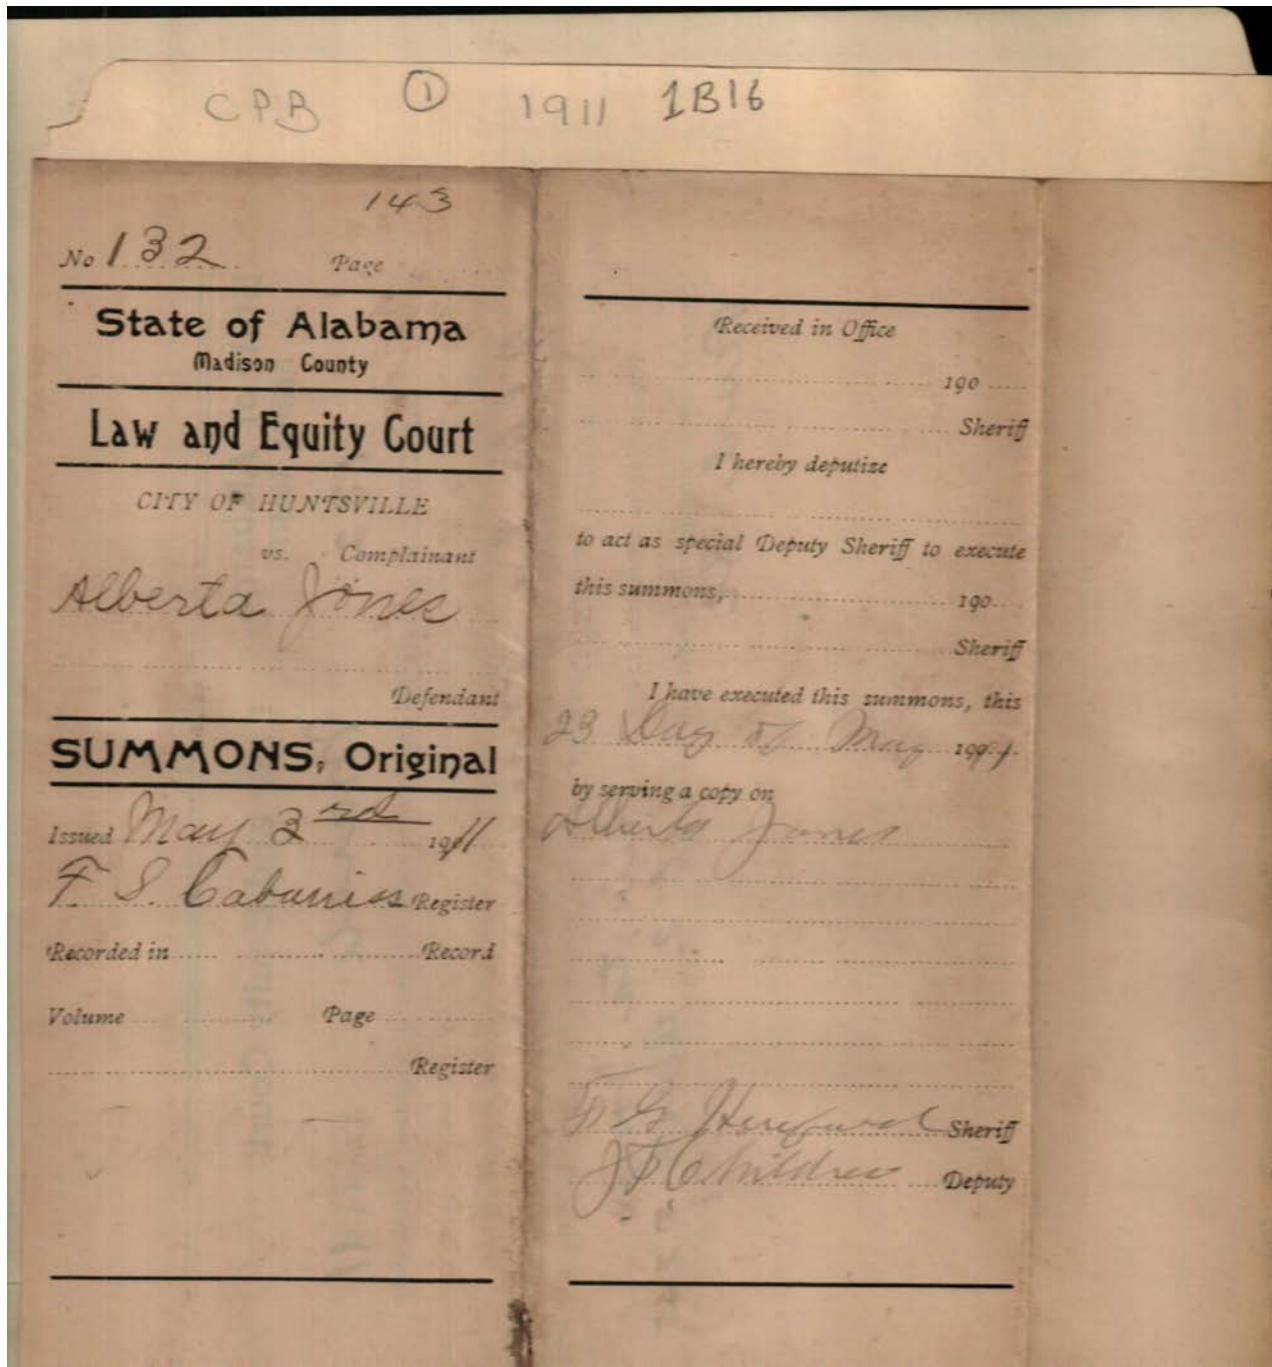 CPB ① 1911 1B16
143
No 132 Page
State of Alabama
Madison County
Law and Equity Court
CITY OF HUNTSVILLE
vs. Complainant
Alberta Jones
Defendant
SUMMONS, Original
Issued May 3rd 1911
F. S. Cabaniss Register
Recorded in Record
Volume Page
Register
Received in Office
190
Sheriff
I hereby deputize
to act as special Deputy Sheriff to execute
this summons, 190
Sheriff
I have executed this summons, this
23 Day of May 1911
by serving a copy on
Alberta Jones
Sheriff
Deputy